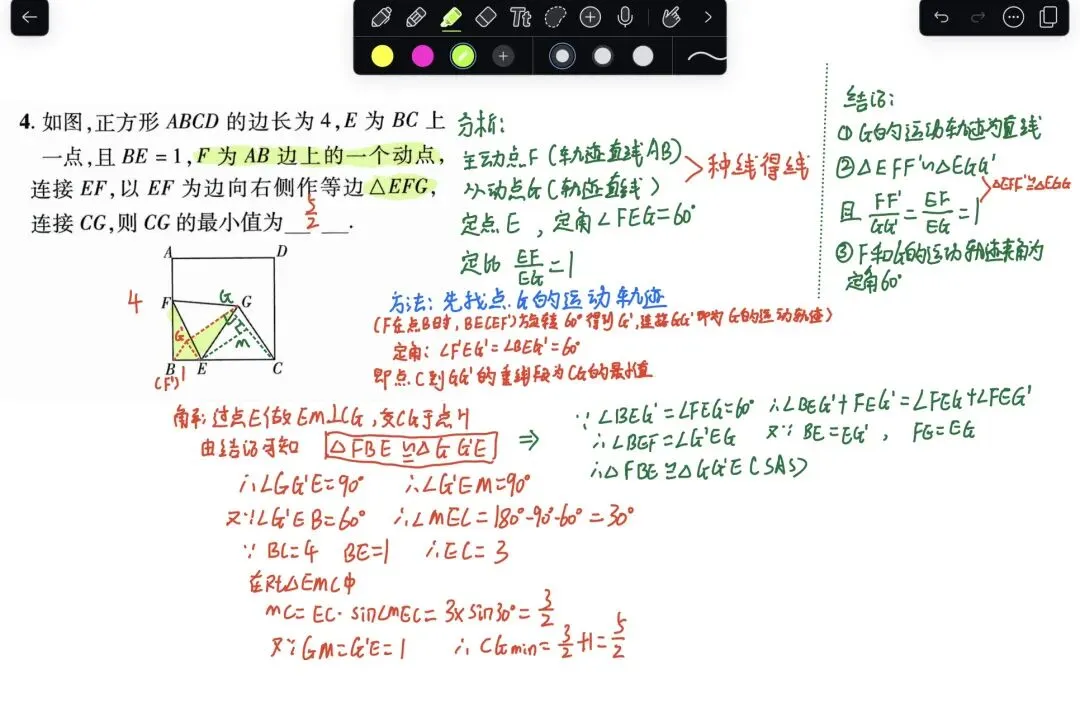 Tt
4. 如图,正方形 ABCD 的边长为 4,E 为 BC 上
一点,且 BE=1,F 为 AB 边上的一个动点,
连接 EF,以 EF 为边向右侧作等边△EFG,
连接 CG,则 CG 的最小值为 5/2 .
A D
4 F G G
G' M
B 1 E C
(F')
分析:
主动点F(轨迹直线AB)
从动点G(轨迹直线)
>种线得线
定点E,定角∠FEG=60°
定比 EF/EG=1
方法:先找点G的运动轨迹
(F在点B时,BE(EF')旋转60°得到G',连接GG'即为G的运动轨迹)
定角:∠F'EG'=∠BEG'=60°
即点C到GG'的垂线段为CG的最小值
结论:
①G的运动轨迹为直线
②△EFF'∽△EGG'
且 FF'/GG'=EF/EG=1
>△EFF'≌△EGG'
③F和G的运动轨迹夹角为
定角60°
解:过点E做EM⊥CG,交CG于点H
由结论可知 △FBE≌△GG'E ⇒
∴∠GG'E=90° ∴∠G'EM=90°
又∵∠G'EB=60° ∴∠MEC=180°-90°-60°=30°
∵BC=4 BE=1 ∴EC=3
在Rt△EMC中
MC=EC·sin∠MEC=3×sin30°=3/2
又∵GM=G'E=1 ∴CGmin=3/2+1=5/2
∵∠BEG'=∠FEG=60° ∴∠BEG'+FEG'=∠FEG+∠FEG'
∴∠BEF=∠G'EG 又∵BE=EG', FG=EG
∴△FBE≌△GG'E(SAS)